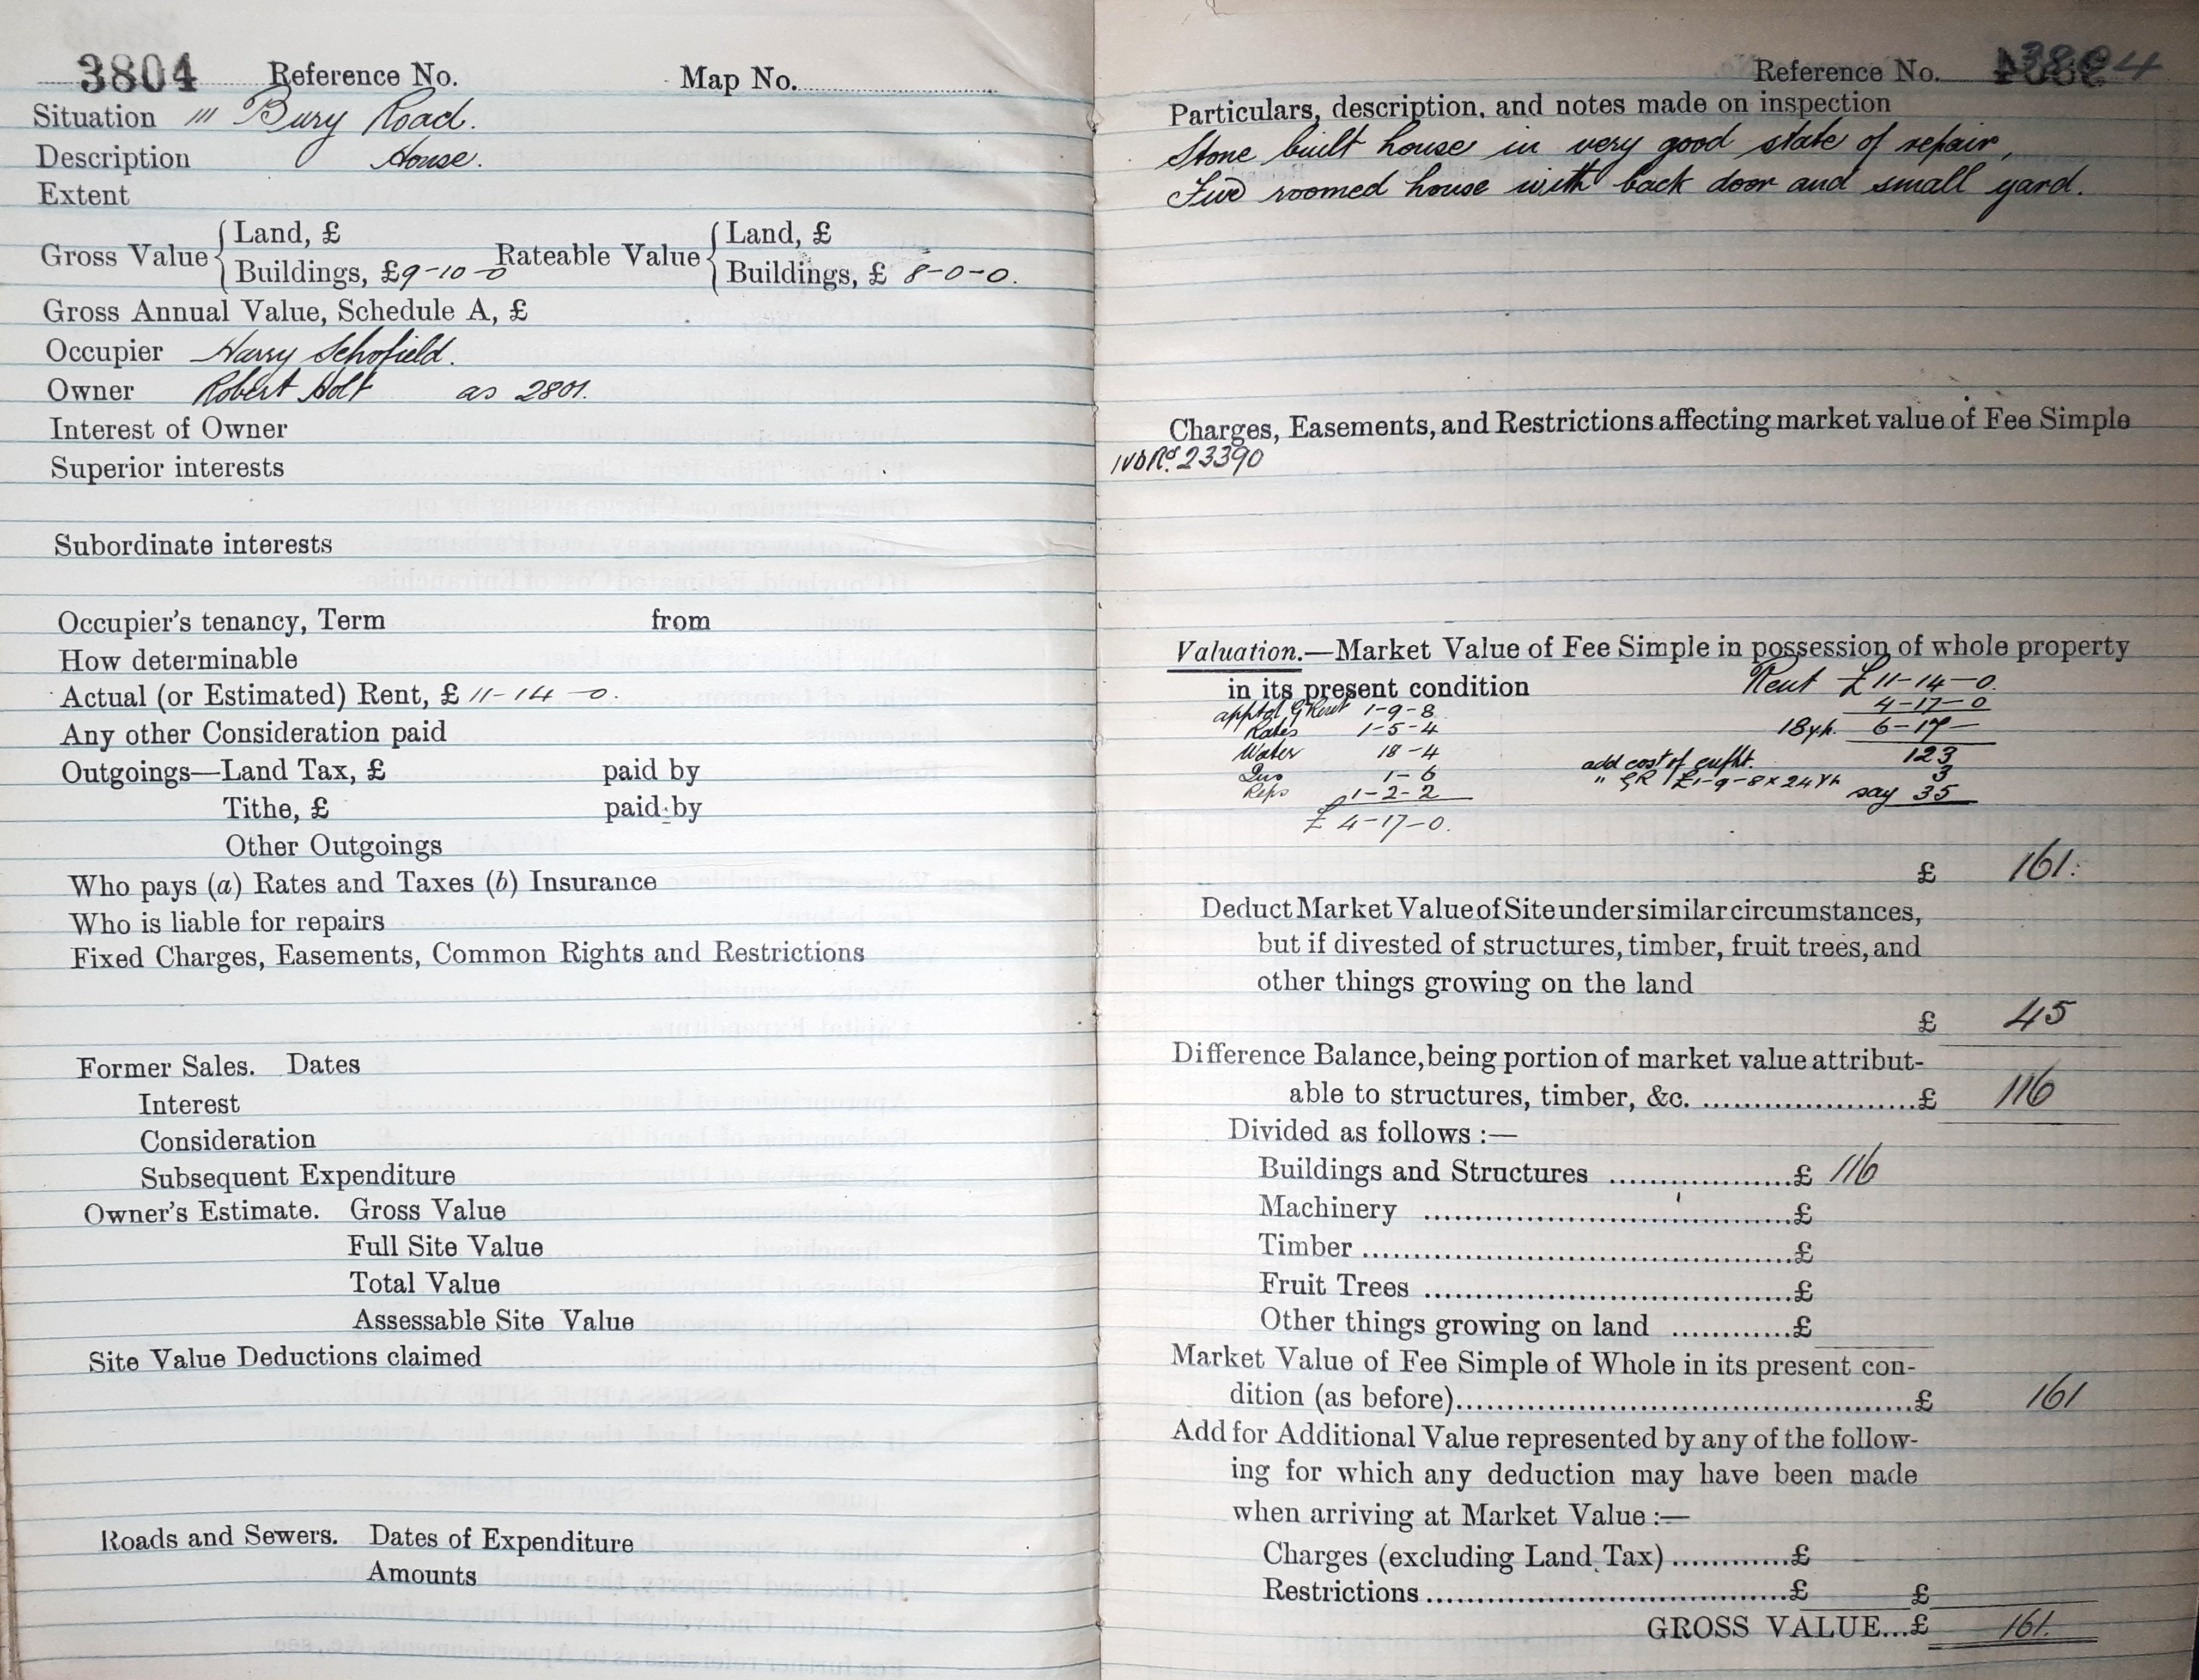 3804 Reference No. Map No.
Situation 111 Bury Road.
Description House.
Extent
Gross Value { Land, £ Rateable Value { Land, £
Buildings, £ 9-10-0 Buildings, £ 8-0-0.
Gross Annual Value, Schedule A, £
Occupier Harry Schofield.
Owner Robert Holt as 2801.
Interest of Owner
Superior interests
Subordinate interests
Occupier's tenancy, Term from
How determinable
Actual (or Estimated) Rent, £ 11-14-0.
Any other Consideration paid
Outgoings—Land Tax, £ paid by
Tithe, £ paid by
Other Outgoings
Who pays (a) Rates and Taxes (b) Insurance
Who is liable for repairs
Fixed Charges, Easements, Common Rights and Restrictions
Former Sales. Dates
Interest
Consideration
Subsequent Expenditure
Owner's Estimate. Gross Value
Full Site Value
Total Value
Assessable Site Value
Site Value Deductions claimed
Roads and Sewers. Dates of Expenditure
Amounts
Reference No. 3804
Particulars, description, and notes made on inspection
Stone built house in very good state of repair,
Five roomed house with back door and small yard.
Charges, Easements, and Restrictions affecting market value of Fee Simple
23390
Valuation.—Market Value of Fee Simple in possession of whole property
in its present condition Rent £11-14-0.
apptd G Rent 1-9-8 4-17-0
Rates 1-5-4 18 yh. 6-17-
Water 18-4 123
Ins 1-6 add cost of enfht. 3
Reps 1-2-2 " GR £1-9-8 x 24 yh say 35
£ 4-17-0.
£ 161.
Deduct Market Value of Site under similar circumstances,
but if divested of structures, timber, fruit trees, and
other things growing on the land
£ 45
Difference Balance, being portion of market value attribut-
able to structures, timber, &c. £ 116
Divided as follows :—
Buildings and Structures £ 116
Machinery £
Timber £
Fruit Trees £
Other things growing on land £
Market Value of Fee Simple of Whole in its present con-
dition (as before) £ 161
Add for Additional Value represented by any of the follow-
ing for which any deduction may have been made
when arriving at Market Value :—
Charges (excluding Land Tax) £
Restrictions £ £
GROSS VALUE...£ 161.